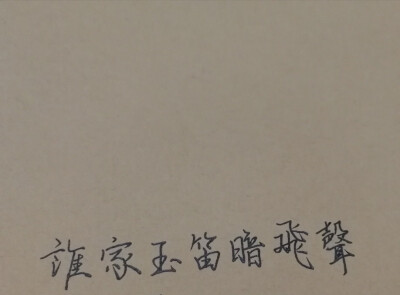 誰家玉笛暗飛聲